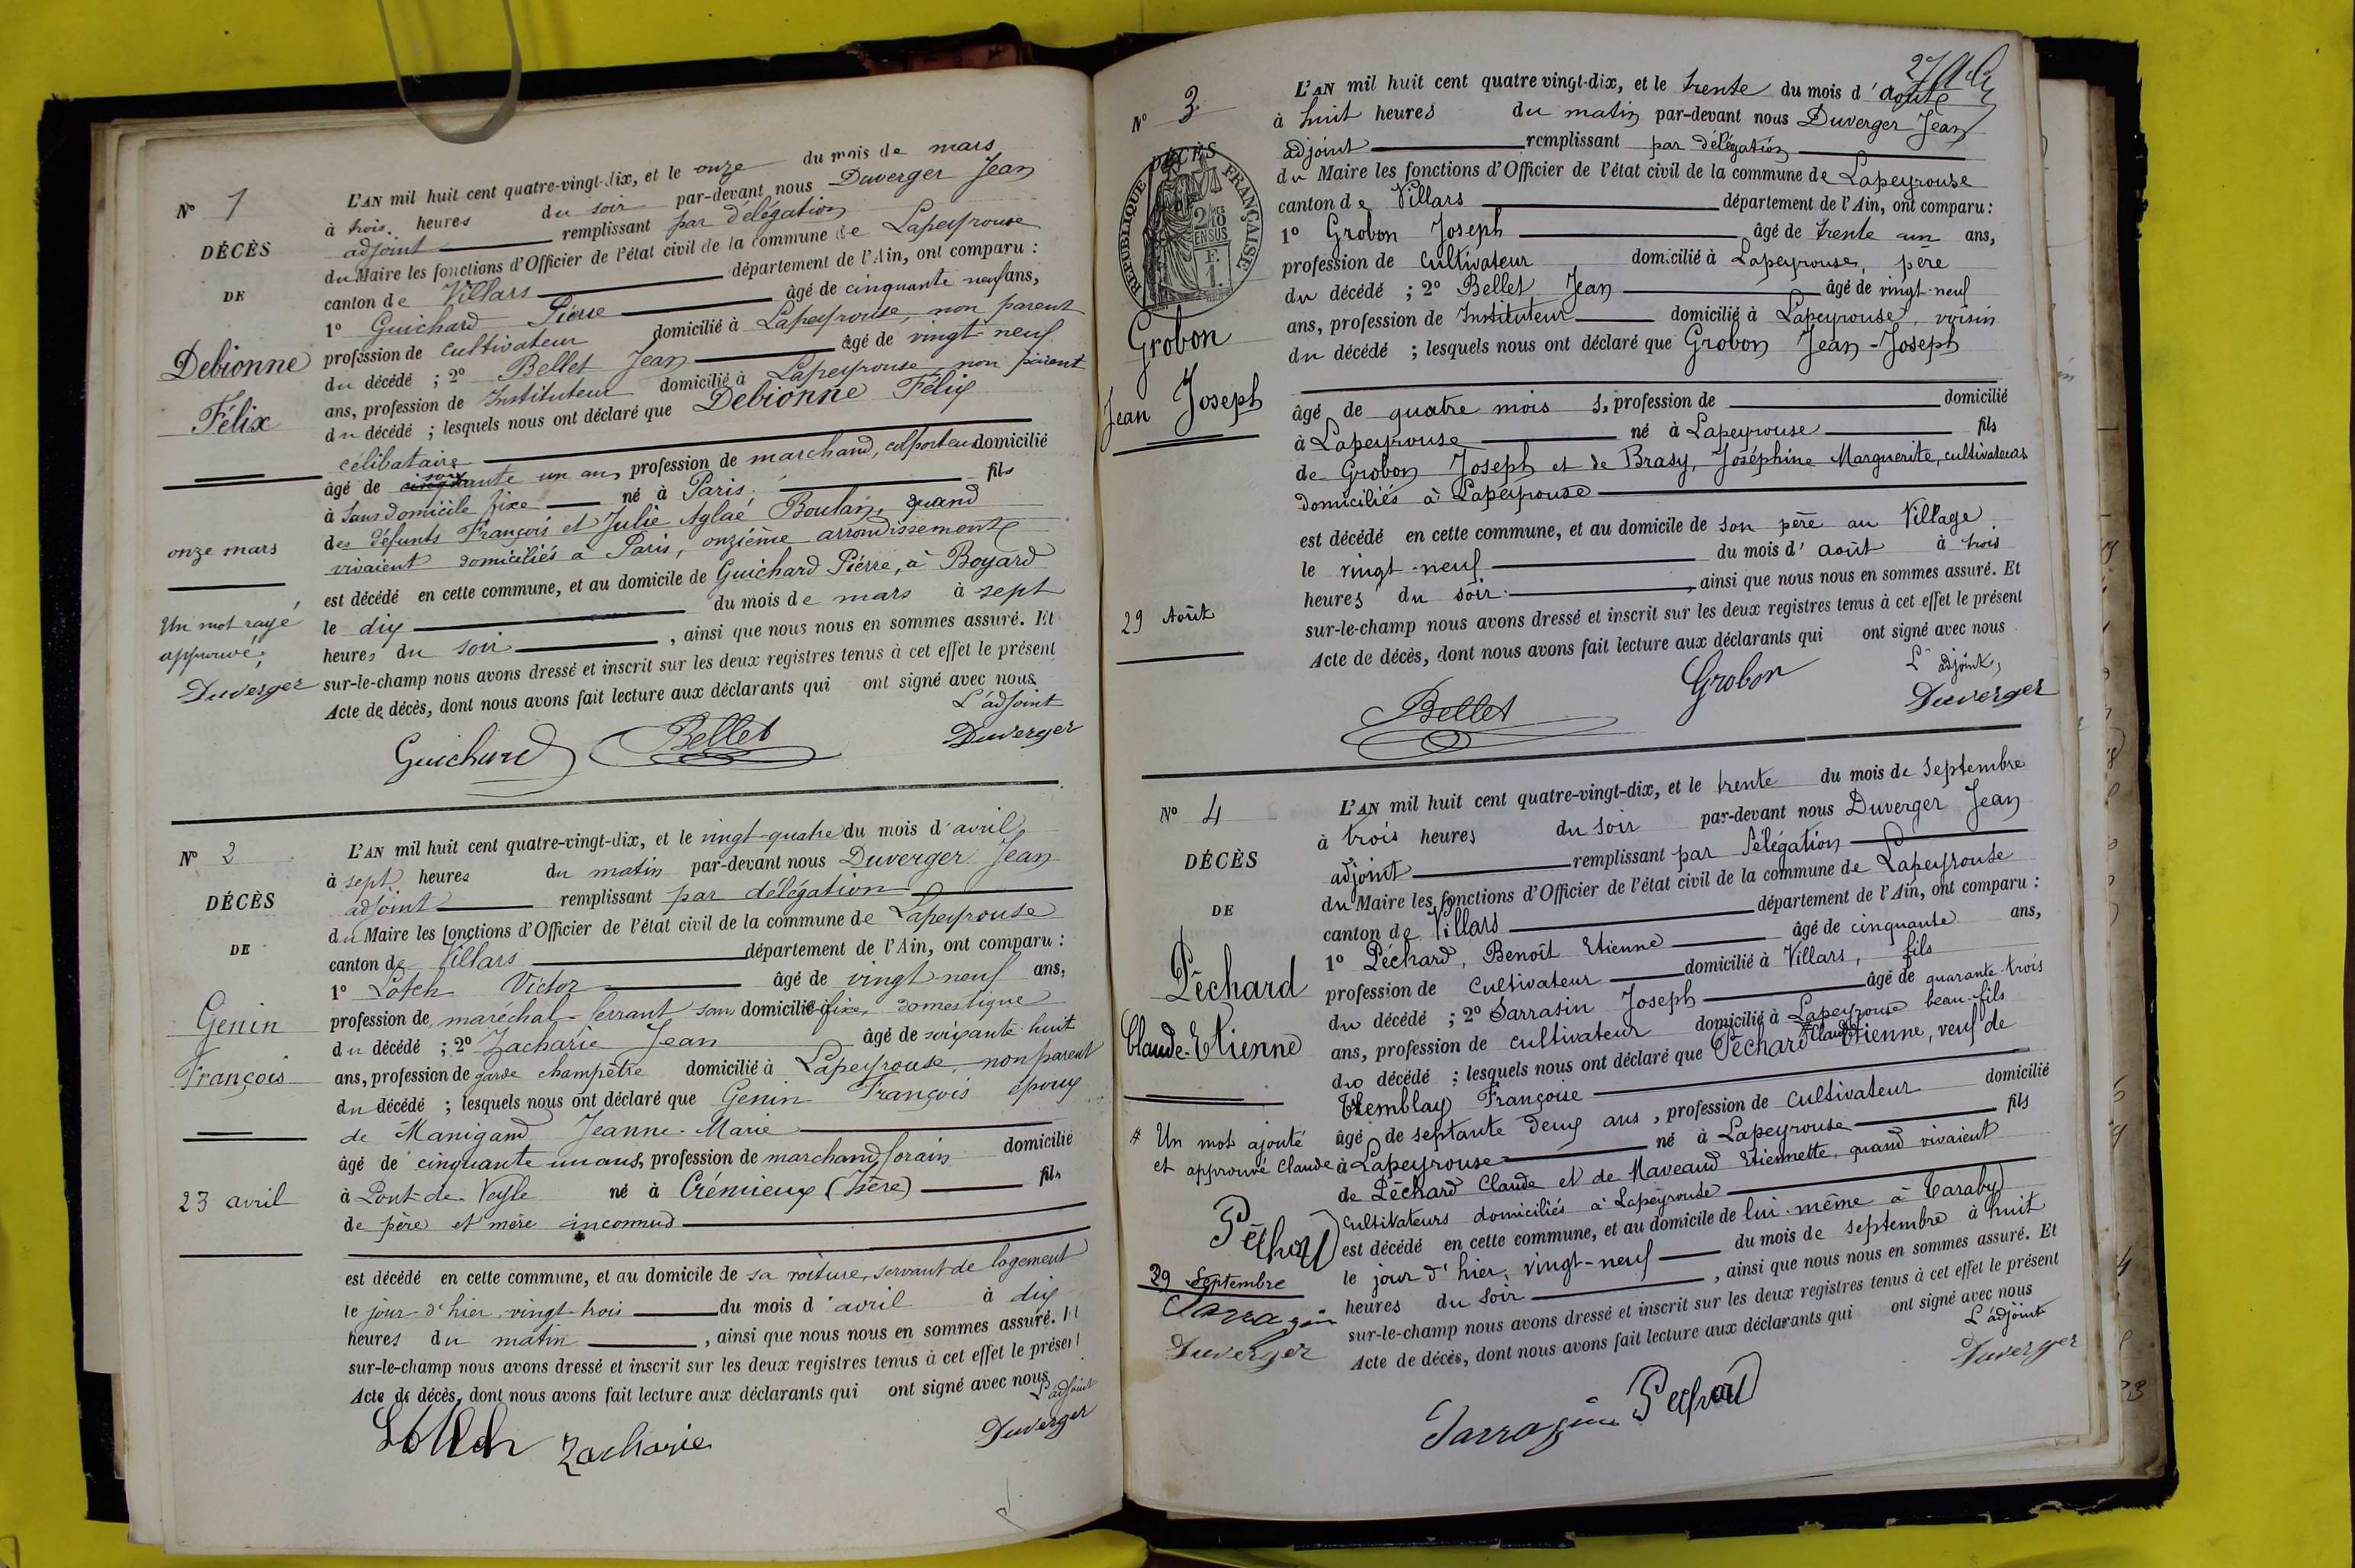 N° 1
DÉCÈS
DE
Debionne
Félix
onze mars
Un mot rayé
approuvé,
Duverger
L'AN mil huit cent quatre-vingt-dix, et le onze du mois de mars
à trois heures du soir par-devant nous Duverger Jean
adjoint remplissant par délégation
du Maire les fonctions d'Officier de l'état civil de la commune de Lapeyrouse
canton de Villars département de l'Ain, ont comparu :
1° Guichard Pierre âgé de cinquante neuf ans,
profession de cultivateur domicilié à Lapeyrouse, non parent
du décédé ; 2° Bellet Jean âgé de vingt-neuf
ans, profession de Instituteur domicilié à Lapeyrouse non parent
du décédé ; lesquels nous ont déclaré que Debionne Félix
célibataire
âgé de soixante un ans, profession de marchand, colporteur domicilié
à Sans domicile fixe né à Paris, fils
des défunts François et Julie Aglaé Boulan, quand
vivaient domiciliés à Paris, onzième arrondissement
est décédé en cette commune, et au domicile de Guichard Pierre, à Boyard
le dix du mois de mars à sept
heures du soir, ainsi que nous nous en sommes assuré. Et
sur-le-champ nous avons dressé et inscrit sur les deux registres tenus à cet effet le présent
Acte de décès, dont nous avons fait lecture aux déclarants qui ont signé avec nous
L'adjoint
Guichard Bellet Duverger
N° 2
DÉCÈS
DE
Genin
François
23 avril
L'AN mil huit cent quatre-vingt-dix, et le vingt-quatre du mois d'avril
à sept heures du matin par-devant nous Duverger Jean
adjoint remplissant par délégation
du Maire les fonctions d'Officier de l'état civil de la commune de Lapeyrouse
canton de Villars département de l'Ain, ont comparu :
1° Lotch Victor âgé de vingt neuf ans,
profession de maréchal-ferrant sans domicilié à fixe, domestique
du décédé ; 2° Zacharie Jean âgé de soixante-huit
ans, profession de garde champêtre domicilié à Lapeyrouse, non parent
du décédé ; lesquels nous ont déclaré que Genin François époux
de Manigand Jeanne-Marie
âgé de cinquante un ans, profession de marchand forain domicilié
à Pont-de-Veyle né à Crémieux (Isère) fils
de père et mère inconnus
est décédé en cette commune, et au domicile de sa voiture, servant de logement
le jour d'hier, vingt-trois du mois d'avril à dix
heures du matin, ainsi que nous nous en sommes assuré. Et
sur-le-champ nous avons dressé et inscrit sur les deux registres tenus à cet effet le présent
Acte de décès, dont nous avons fait lecture aux déclarants qui ont signé avec nous
L'adjoint
Zacharie Duverger
N° 3
DÉCÈS
RÉPUBLIQUE FRANÇAISE
2/10 EN SUS
Grobon
Jean Joseph
29 Août
27
L'AN mil huit cent quatre vingt-dix, et le trente du mois d'août
à huit heures du matin par-devant nous Duverger Jean
adjoint remplissant par délégation
du Maire les fonctions d'Officier de l'état civil de la commune de Lapeyrouse
canton de Villars département de l'Ain, ont comparu :
1° Grobon Joseph âgé de trente un ans,
profession de cultivateur domicilié à Lapeyrouse, père
du décédé ; 2° Bellet Jean âgé de vingt-neuf
ans, profession de Instituteur domicilié à Lapeyrouse, voisin
du décédé ; lesquels nous ont déclaré que Grobon Jean-Joseph
âgé de quatre mois s, profession de domicilié
à Lapeyrouse né à Lapeyrouse fils
de Grobon Joseph et de Brasy, Joséphine Marguerite, cultivateurs
domiciliés à Lapeyrouse
est décédé en cette commune, et au domicile de son père au Village
le vingt-neuf du mois d'août à trois
heures du soir, ainsi que nous nous en sommes assuré. Et
sur-le-champ nous avons dressé et inscrit sur les deux registres tenus à cet effet le présent
Acte de décès, dont nous avons fait lecture aux déclarants qui ont signé avec nous
L'adjoint,
Bellet Grobon Duverger
N° 4
DÉCÈS
DE
Péchard
Claude-Etienne
# Un mot ajouté
et approuvé Claude
29 Septembre
Sarrazin
Duverger
L'AN mil huit cent quatre-vingt-dix, et le trente du mois de Septembre
à trois heures du soir par-devant nous Duverger Jean
adjoint remplissant par délégation
du Maire les fonctions d'Officier de l'état civil de la commune de Lapeyrouse
canton de Villars département de l'Ain, ont comparu :
1° Péchard, Benoît Etienne âgé de cinquante ans,
profession de cultivateur domicilié à Villars, fils
du décédé ; 2° Sarrasin Joseph âgé de quarante-trois
ans, profession de cultivateur domicilié à Lapeyrouse beau-fils
du décédé ; lesquels nous ont déclaré que Péchard #Claude Etienne, veuf de
Tremblay Françoise
âgé de septante deux ans, profession de cultivateur domicilié
à Lapeyrouse né à Lapeyrouse fils
de Péchard Claude et de Maveaud Etiennette, quand vivaient
cultivateurs domiciliés à Lapeyrouse
est décédé en cette commune, et au domicile de lui-même à Taraby
le jour d'hier, vingt-neuf du mois de septembre à huit
heures du soir, ainsi que nous nous en sommes assuré. Et
sur-le-champ nous avons dressé et inscrit sur les deux registres tenus à cet effet le présent
Acte de décès, dont nous avons fait lecture aux déclarants qui ont signé avec nous
L'adjoint
Sarrazin Duverger